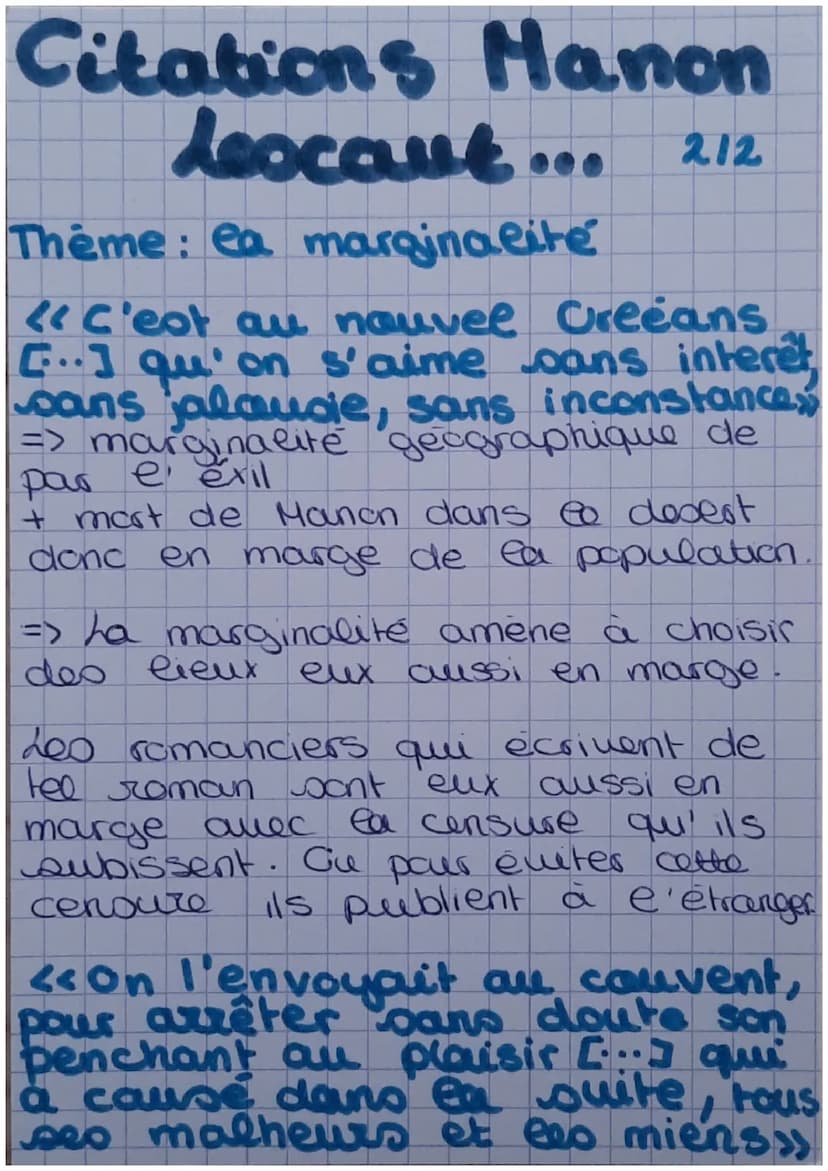 Citations Manon
Lescaut... 2/2
Thème : la marginalité
<< C'est au nouvel Orléans
[...] qu'on s'aime sans interêt,
sans jalousie, sans inconstance>>
=> marginalité géographique de
par l'éxil
+ mort de Manon dans le desert
donc en marge de la population.
=> La marginalité amène à choisir
des lieux eux aussi en marge.
Les romanciers qui écrivent de
tel roman sont eux aussi en
marge avec la censure qu'ils
subissent. Ou pour éviter cette
censure ils publient à l'étranger.
<<On l'envoyait au couvent,
pour arrêter sans doute son
penchant au plaisir [...] qui
a causé dans la suite, tous
ses malheurs et les miens>>